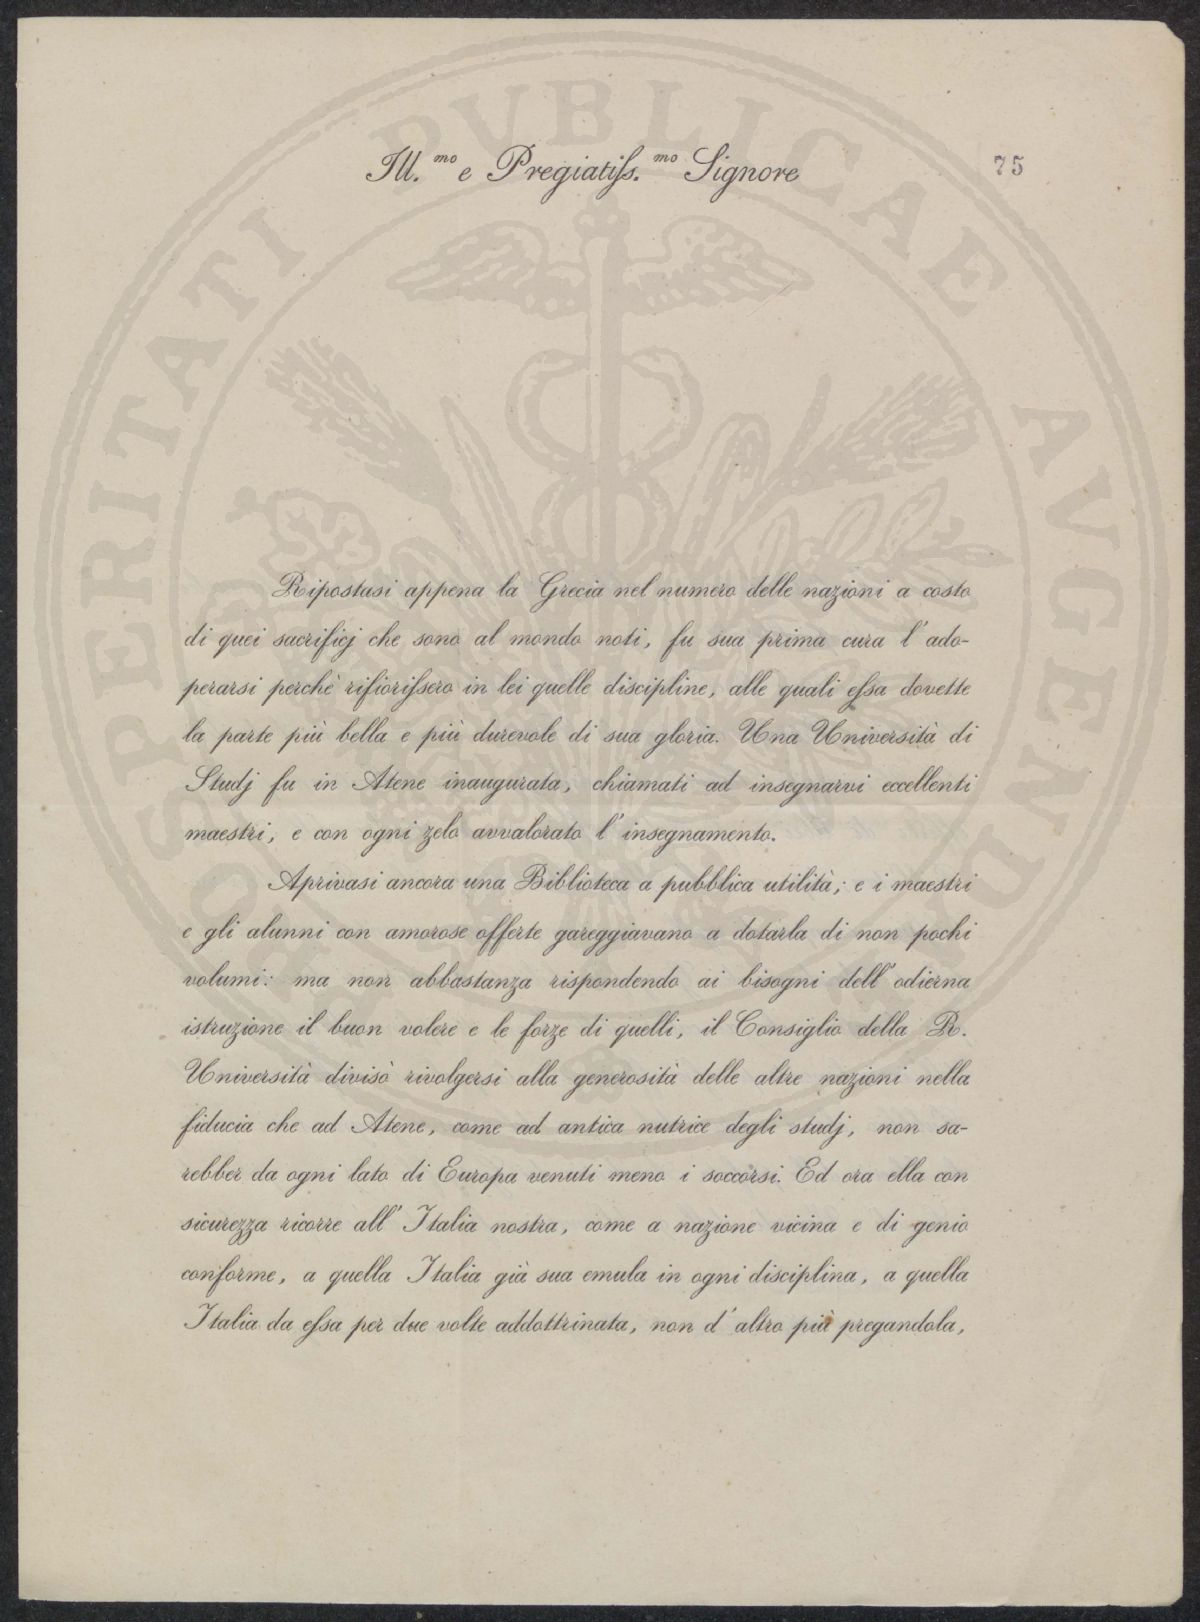 Ill.mo e Pregiatiss.mo Signore
75
Ripostasi appena la Grecia nel numero delle nazioni a costo
di quei sacrificj che sono al mondo noti, fu sua prima cura l'ado-
perarsi perchè rifiorissero in lei quelle discipline, alle quali essa dovette
la parte più bella e più durevole di sua gloria. Una Università di
Studj fu in Atene inaugurata, chiamati ad insegnarvi eccellenti
maestri, e con ogni zelo avvalorato l'insegnamento.
Aprivasi ancora una Biblioteca a pubblica utilità; e i maestri
e gli alunni con amorose offerte gareggiavano a dotarla di non pochi
volumi: ma non abbastanza rispondendo ai bisogni dell'odierna
istruzione il buon volere e le forze di quelli, il Consiglio della R.
Università divisò rivolgersi alla generosità delle altre nazioni nella
fiducia che ad Atene, come ad antica nutrice degli studj, non sa-
rebber da ogni lato di Europa venuti meno i soccorsi. Ed ora ella con
sicurezza ricorre all'Italia nostra, come a nazione vicina e di genio
conforme, a quella Italia già sua emula in ogni disciplina, a quella
Italia da essa per due volte addottrinata, non d'altro più pregandola,
PROSPERITATI PVBLICAE AVGENDAE